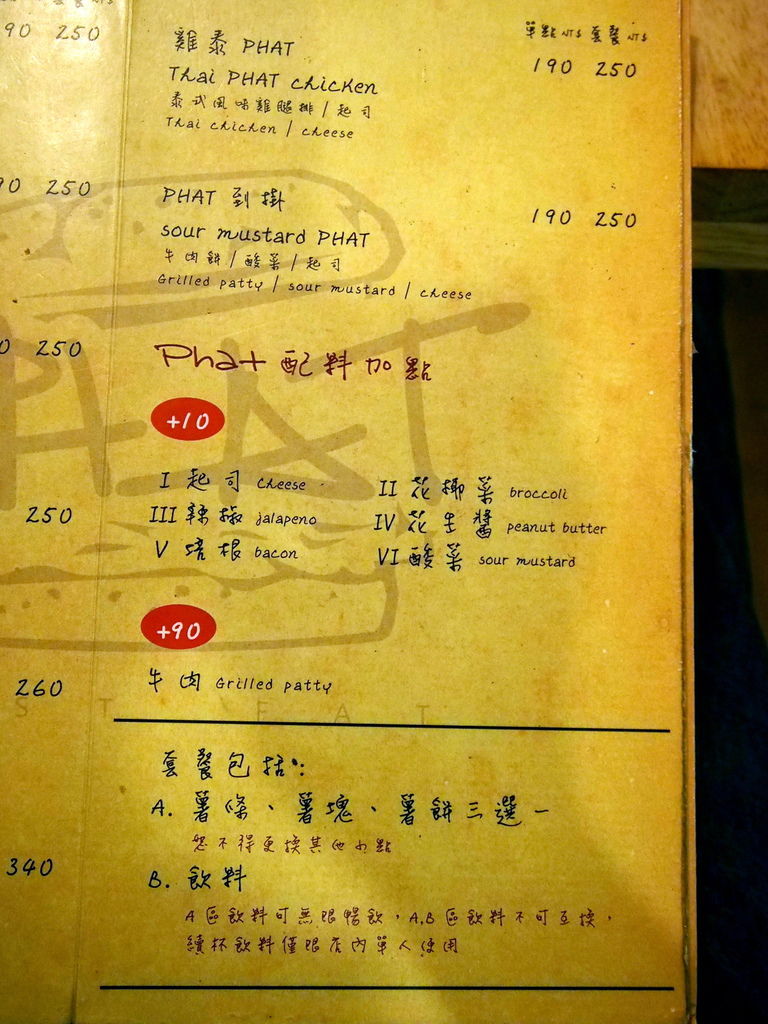 90 250
雞泰 PHAT
單點 NT$ 套餐 NT$
Thai PHAT chicken
190 250
泰式風味雞腿排 / 起司
Thai chicken / cheese
90 250
PHAT 到掛
190 250
sour mustard PHAT
牛肉餅 / 酸菜 / 起司
Grilled patty / sour mustard / cheese
0 250
Phat 配料加點
+10
I 起司 cheese
II 花椰菜 broccoli
250
III 辣椒 jalapeno
IV 花生醬 peanut butter
V 培根 bacon
VI 酸菜 sour mustard
+90
260
牛肉 Grilled patty
套餐包括:
A. 薯條、薯塊、薯餅三選一
恕不得更換其他小點
340
B. 飲料
A區飲料可無限暢飲，A.B區飲料不可互換，
續杯飲料僅限店內單人使用